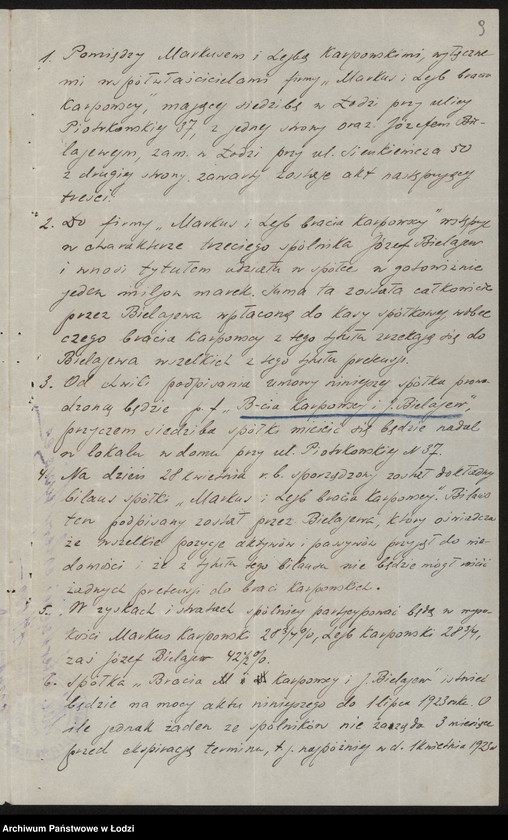 9
1. Pomiędzy Markusem i Lejbą Karpowskimi, wyłączne-
mi współwłaścicielami firmy „Markus i Lejb bracia
Karpowscy", mającej siedzibę w Łodzi przy ulicy
Piotrkowskiej 37, z jednej strony oraz Józefem Bie-
lajewem, zam. w Łodzi przy ul. Sienkiewicza 50
z drugiej strony zawarty zostaje akt następującej
treści:
2. Do firmy „Markus i Lejb bracia Karpowscy" wstępuje
w charakterze trzeciego spólnika Józef Bielajew
i wnosi tytułem udziału w spółce w gotowiźnie
jeden miljon marek. Suma ta została całkowicie
przez Bielajewa wpłaconą do kasy spółkowej wobec
czego bracia Karpowscy z tego tytułu zrzekają się do
Bielajewa wszelkich z tego tytułu pretensji.
3. Od chwili podpisania umowy niniejszej spółka prowa-
dzoną będzie p. f. „B-cia Karpowscy i J. Bielajew",
przyczem siedziba spółki mieścić się będzie nadal
w lokalu w domu przy ul. Piotrkowskiej N 37.
4. Na dzień 28 kwietnia r. b. sporządzony został dokładny
bilans spółki „Markus i Lejb bracia Karpowscy". Bilans
ten podpisany został przez Bielajewa, który oświadcza
że wszelkie pozycje aktywów i pasywów przyjął do wia-
domości i że z tytułu tego bilansu nie będzie mógł mieć
żadnych pretensji do braci Karpowskich.
5. W zyskach i stratach spólnicy partycypować będą w wyso-
kości Markus Karpowski 28 3/4 %, Lejb Karpowski 28 3/4,
zaś Józef Bielajew 42 1/2 %.
6. Spółka „Bracia M i Karpowscy i J. Bielajew" istnieć
będzie na mocy aktu niniejszego do 1 lipca 1923 roku. O
ile jednak żaden ze spólników nie zażąda 3 miesiące
przed ekspiracją terminu, t. j. najpóźniej w d. 1 kwietnia 1923 r
Archiwum Państwowe w Łodzi